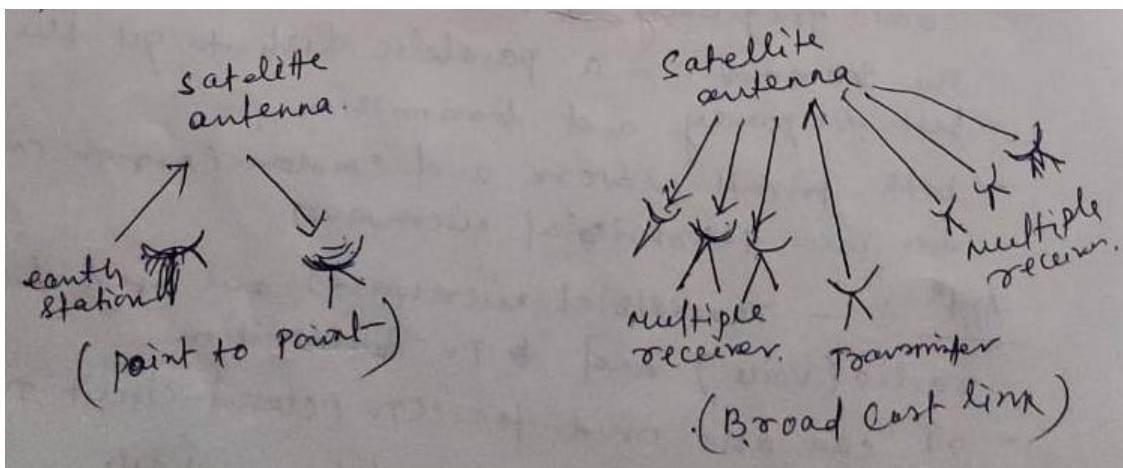 satelitte
antenna.
earth
station
(point to point)
Satellite
antenna
Multiple
receiver.
Transmitter
Multiple
receiver.
(Broad Cast link)